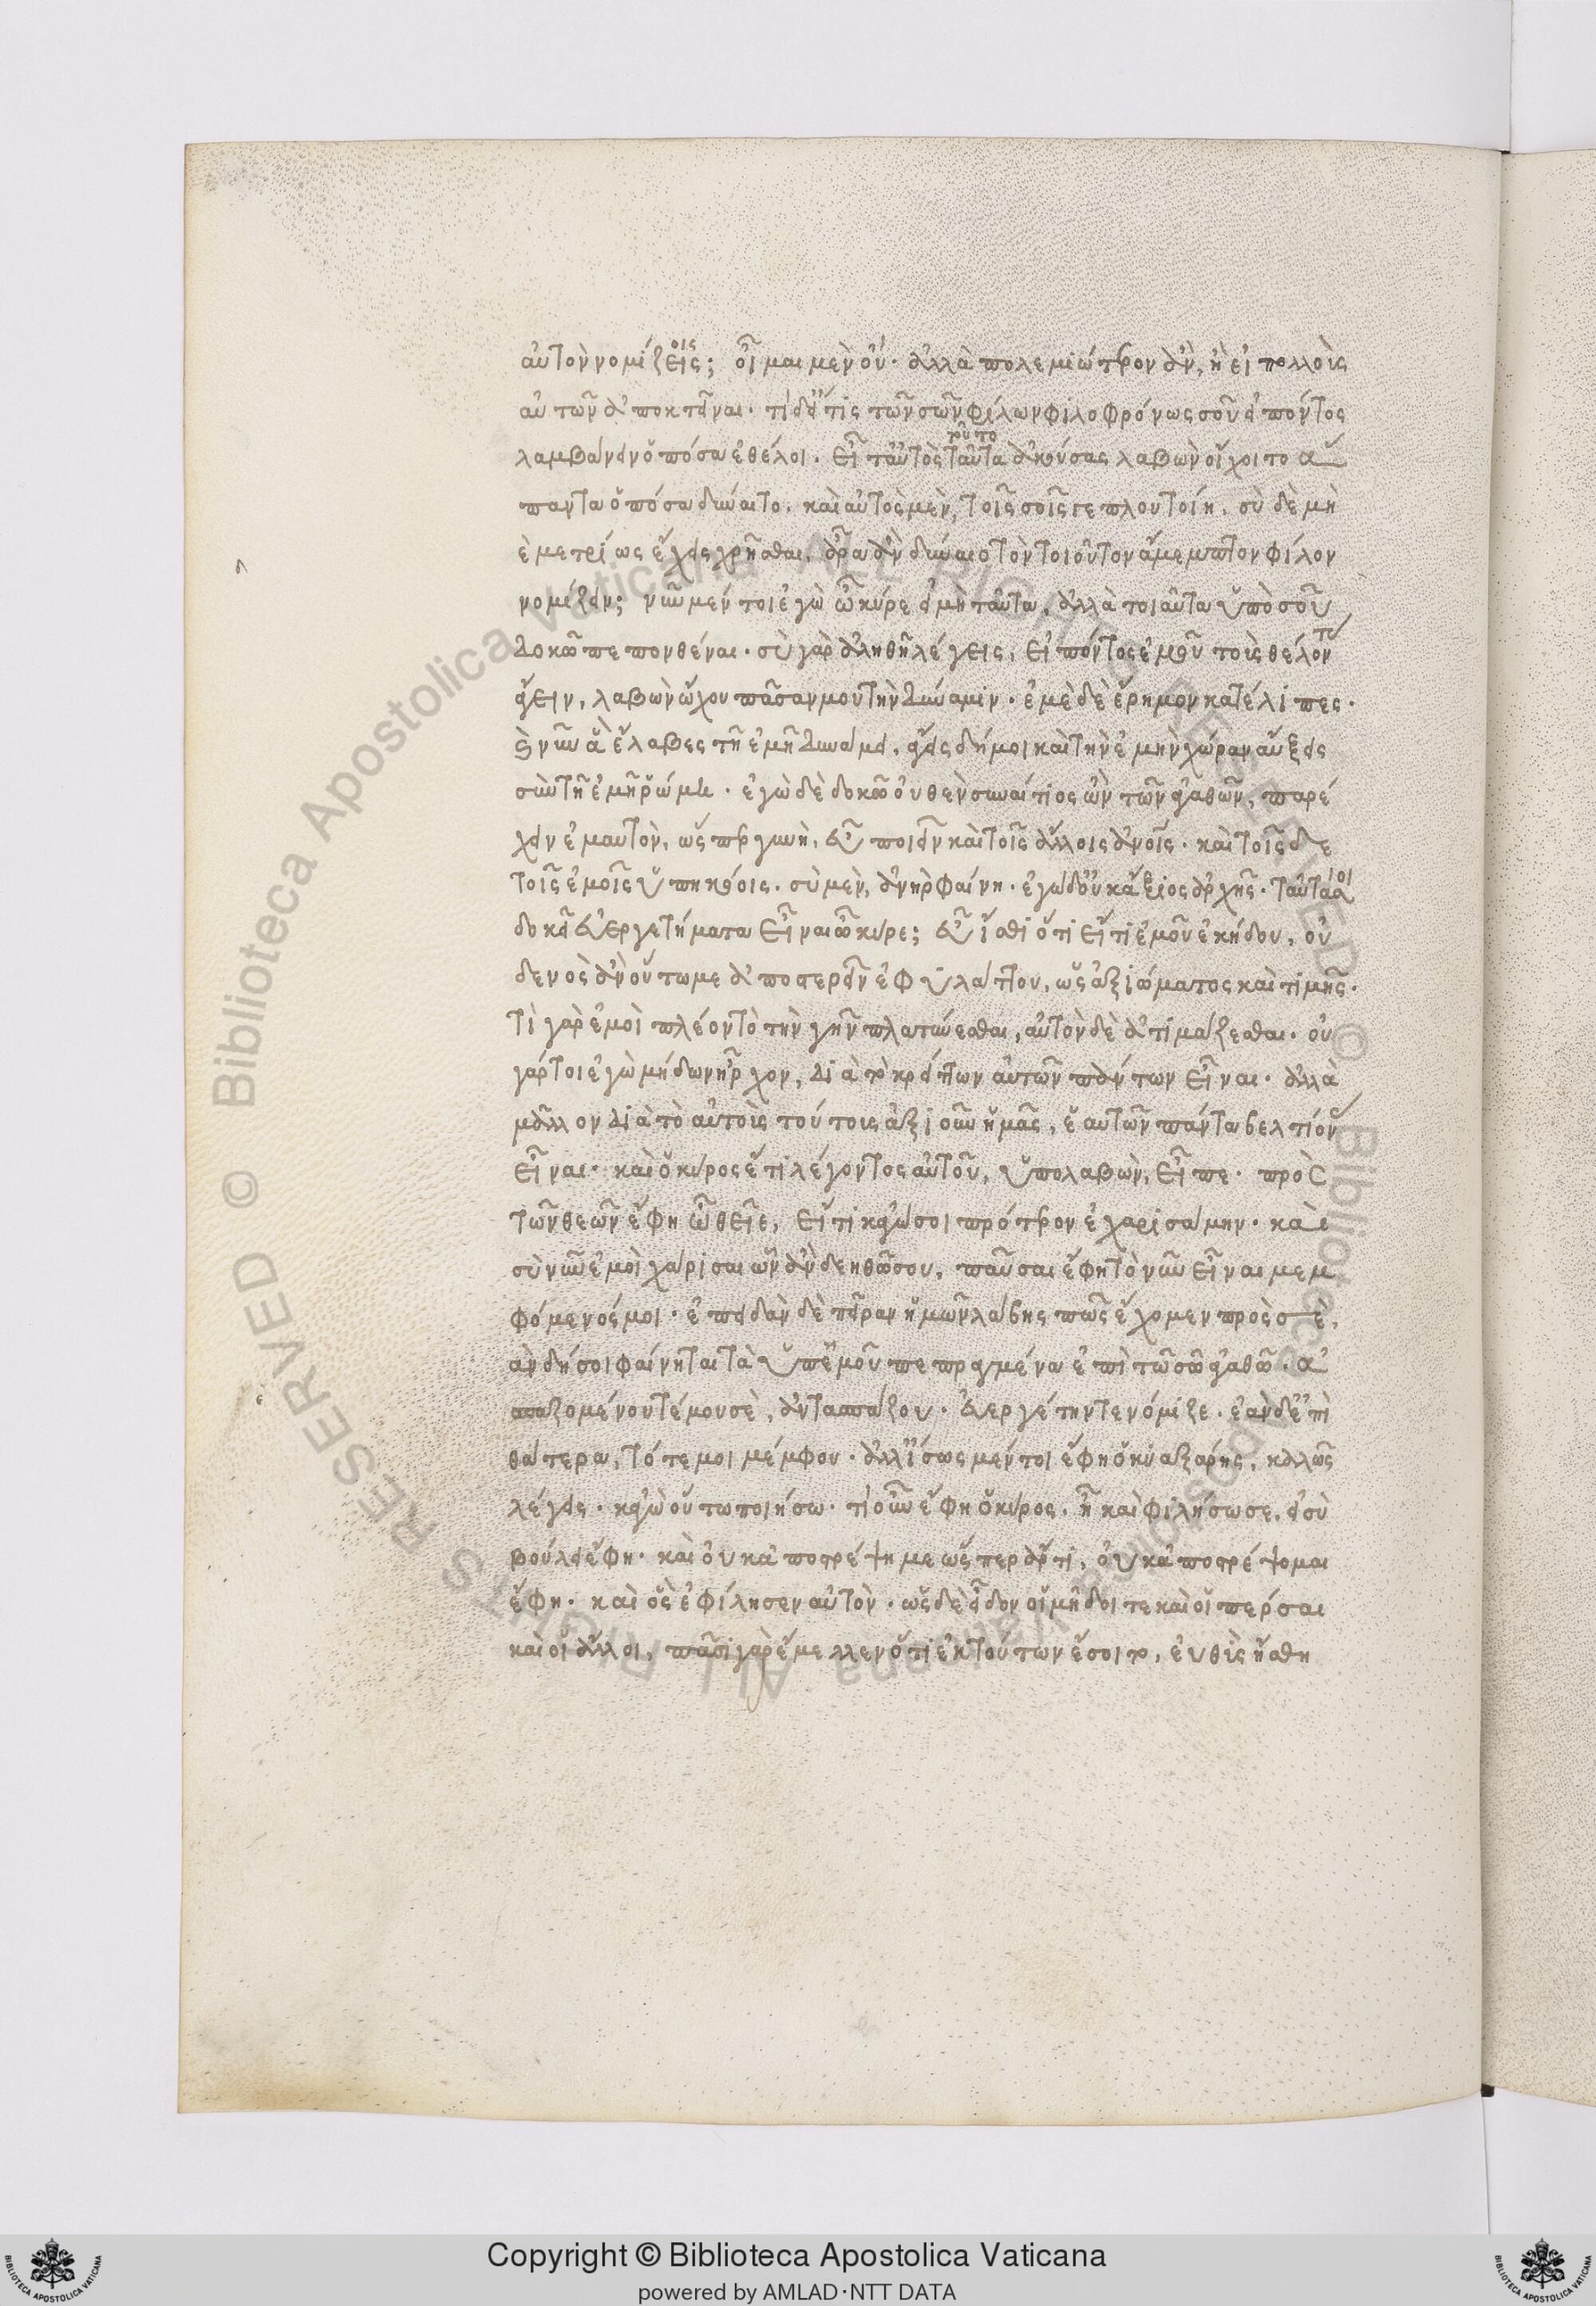 αὐτὸν νομίζεις; οἶμαι μὲν οὔ· ἀλλὰ πολεμιώτερον ἂν, ἢ εἰ πολλοὺς
οις
αὐτῶν ἀποκτεῖναι· τί δ' εἴ τις τῶν σῶν φίλων φιλοφρόνως σοῦ εἰπόντος
λαμβάνειν ὁπόσα ἐθέλοι· εἶτ' αὐτὸς ταῦτα ἀκούσας λαβὼν οἴχοιτο ἅ
τοῦτο
παντα ὁπόσα δύναιτο. καὶ αὐτὸς μὲν, τοῖς σοῖς γε πλουτοίη. σὺ δὲ μη
δὲ μετρίως ἔχεις χρῆσθαι, ἆρα ἂν δύναιο τὸν τοιοῦτον ἄμεμπτον φίλον
νομίζειν; νῦν μέν τοι ἐγὼ ὦ κῦρε εἰ μὴ ταῦτα, ἀλλὰ τοιαῦτα ὑπὸ σοῦ
δοκῶ πεπονθέναι· σὺ γὰρ ἀληθῆ λέγεις. εἰπόντος ἐμοῦ τοὺς θέλοντ
ἄγειν, λαβὼν ᾤχου πᾶσαν μου τὴν δύναμιν· ἐμὲ δὲ ἔρημον κατέλιπες·
καὶ νῦν ἃ ἔλαβες τῇ ἐμῇ δυνάμει, ἄγεις δή μοι καὶ τὴν ἐμὴν χώραν αὔξεις
σὺν τῇ ἐμῇ ῥώμῃ· ἐγὼ δὲ δοκῶ οὐθὲν συναίτιος ὢν τῶν ἀγαθῶν, παρέ
χειν ἐμαυτὸν, ὥσπερ γυνὴ, εὖ ποιεῖν καὶ τοῖς ἄλλοις ἀνοις· καὶ τοῖς δε
τοῖς ἐμοῖς ὑπηκόοις. σὺ μὲν, ἀνὴρ φαίνῃ· ἐγὼ δ' οὐκ ἄξιος ἀρχῆς· ταῦτά σοι
δοκεῖ εὐεργετήματα εἶναι ὦ κῦρε; εὖ ἴσθι ὅτι εἴ τι ἐμοῦ ἐκήδου, οὐ
δενὸς ἂν οὕτω με ἀποστερεῖν ἐφυλάττου, ὡς ἀξιώματος καὶ τιμῆς·
τί γὰρ ἐμοὶ πλέον τὸ τὴν γῆν πλατύνεσθαι, αὐτὸν δὲ ἀτιμάζεσθαι· οὐ
γάρ τοι ἐγὼ μήδων ἦρχον, διὰ τὸ κρείττων αὐτῶν πάντων εἶναι· ἀλλὰ
μᾶλλον διὰ τὸ αὐτοὺς τούτους ἀξιοῦν ἡμᾶς, ἑαυτῶν πάντα βελτίον
εἶναι· καὶ ὁ κῦρος ἔτι λέγοντος αὐτοῦ, ὑπολαβὼν, εἶπε· πρὸς
τῶν θεῶν ἔφη ὦ θεῖε, εἴ τι κἀγώ σοι πρότερον ἐχαρισάμην· καὶ
σὺ νῦν ἐμοὶ χάρισαι ὧν ἂν δεηθῶ σου, παῦσαι ἔφη τὸ νῦν εἶναι μεμ
φόμενός μοι· ἐπειδὰν δὲ πεῖραν ἡμῶν λάβῃς πῶς ἔχομεν πρὸς σὲ,
ἂν δή σοι φαίνηται τὰ ὑπ' ἐμοῦ πεπραγμένα ἐπὶ τῷ σῷ ἀγαθῷ· ἀ
σπαζομένου τέ μου σὲ, ἀντασπάζου· εὐεργέτην τε νόμιζε· ἐὰν δ' ἐπὶ
θάτερα, τότε μοι μέμφου· ἀλλ' ἴσως μέντοι ἔφη ὁ κυαξάρης, καλῶς
λέγεις· κἀγὼ οὕτω ποιήσω· τί οὖν ἔφη ὁ κῦρος. ἦ καὶ φιλήσω σε. εἰ σὺ
βούλει ἔφη· καὶ οὐκ ἀποστρέψῃ με ὥσπερ ἄρτι, οὐκ ἀποστρέψομαι
ἔφη· καὶ ὃς ἐφίλησεν αὐτὸν· ὡς δὲ εἶδον οἱ μῆδοι τε καὶ οἱ πέρσαι
καὶ οἱ ἄλλοι, πᾶσι γὰρ ἔμελλεν ὅ τι ἐκ τούτων ἔσοιτο, εὐθὺς ἥσθη
Copyright © Biblioteca Apostolica Vaticana
powered by AMLAD·NTT DATA